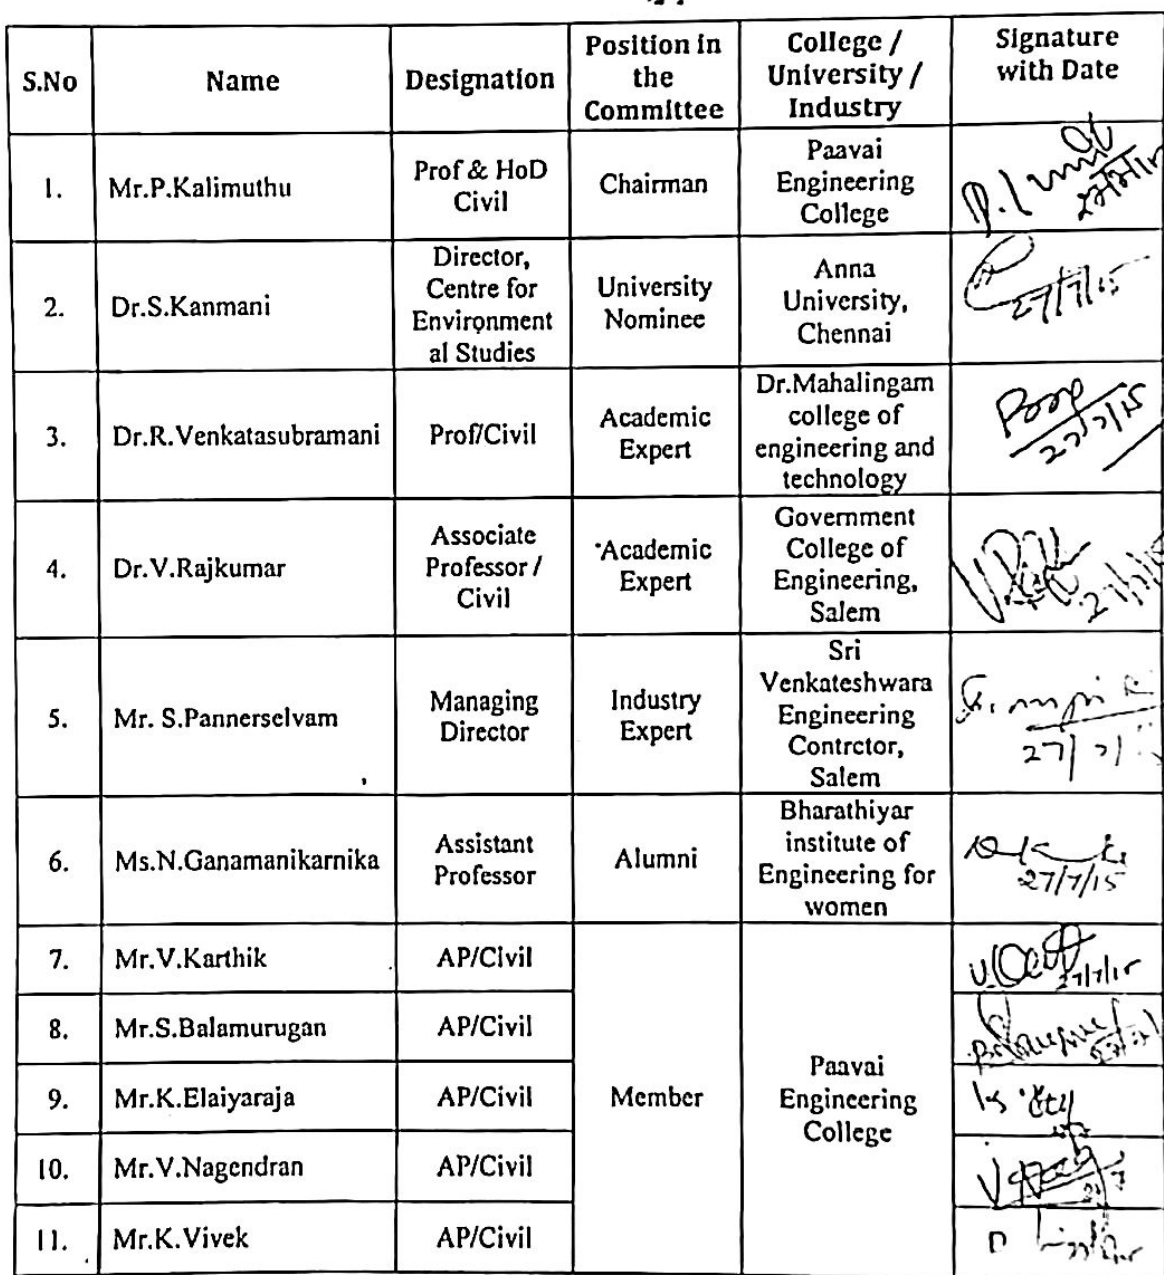 S.No Name Designation Position in the Committee College / University / Industry Signature with Date
1. Mr.P.Kalimuthu Prof & HoD Civil Chairman Paavai Engineering College
2. Dr.S.Kanmani Director, Centre for Environment al Studies University Nominee Anna University, Chennai 27/7/15
3. Dr.R.Venkatasubramani Prof/Civil Academic Expert Dr.Mahalingam college of engineering and technology 27/7/15
4. Dr.V.Rajkumar Associate Professor / Civil Academic Expert Government College of Engineering, Salem
5. Mr. S.Pannerselvam Managing Director Industry Expert Sri Venkateshwara Engineering Contrctor, Salem
6. Ms.N.Ganamanikarnika Assistant Professor Alumni Bharathiyar institute of Engineering for women 27/7/15
7. Mr.V.Karthik AP/Civil Member Paavai Engineering College 27/7/15
8. Mr.S.Balamurugan AP/Civil
9. Mr.K.Elaiyaraja AP/Civil
10. Mr.V.Nagendran AP/Civil
11. Mr.K.Vivek AP/Civil